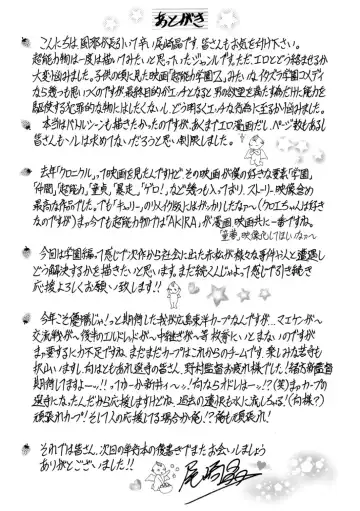 あとがき
こんにちは、風邪が長引いて辛い尾崎晶です。皆さんもお気を付け下さい。
超能力物は一度は描いてみたいと思っていたジャンルです。ただエロとどう絡ませるか
大変悩みました。子供の頃に見た映画「超能力学園Z」みたいなイタズラ学園コメディ
なら幾つも思いつくのですが最終目的がエッチとなると男の欲望を満たす為だけに能力を
駆使する犯罪的な物にはしたくないし、どう明るくエッチな行為に至るか悩みました。
本当はバトルシーンも描きたかったのですが、あくまでエロ漫画だし、ページ数もあるし
皆さんもソレは求めてないだろうと思い割愛しました。
去年「クロニクル」って映画を見たんですけど、その映画が僕の好きな要素「学園」、
「仲間」、「超能力」、「童貞」、「暴走」、「ゲロ!」、など幾つも入っており、ストーリー、映像含め
最高な作品でした。でも「キャリー」のリメイク版にはがっかりしたなァ〜(クロエちゃんは好き
なのですが)まァ今でも超能力物の1番は「AKIRA」が漫画、映画共に一番ですね。
「童夢」映像化してほしいなァ〜
今回は学園編って感じで次作から社会に出た赤松が様々な事件や人と遭遇し
どう解決するかを描きたいと思います。まだ続くんじゃよって感じで引き続き
応援よろしくお願い致します!!
今年こそ優勝じゃ!っと期待した我が広島東洋カープなんですが…マエケンが〜
交流戦が〜後半のエルドレッドが〜中継ぎが〜等枚挙にいとまないのですが
まァ要するに力不足ですね。まだまだカープはこれからのチームです。楽しみな若手も
沢山いますし。何はともあれ選手の皆さん、野村監督お疲れ様でした!緒方新監督
期待してますよーッ!!
頑張れカープ!そして人の応援してる場合か俺!?俺も頑張れ!
それでは皆さん、次回の単行本の後書きでまたお会いしましょう
ありがとございました!!
尾崎晶